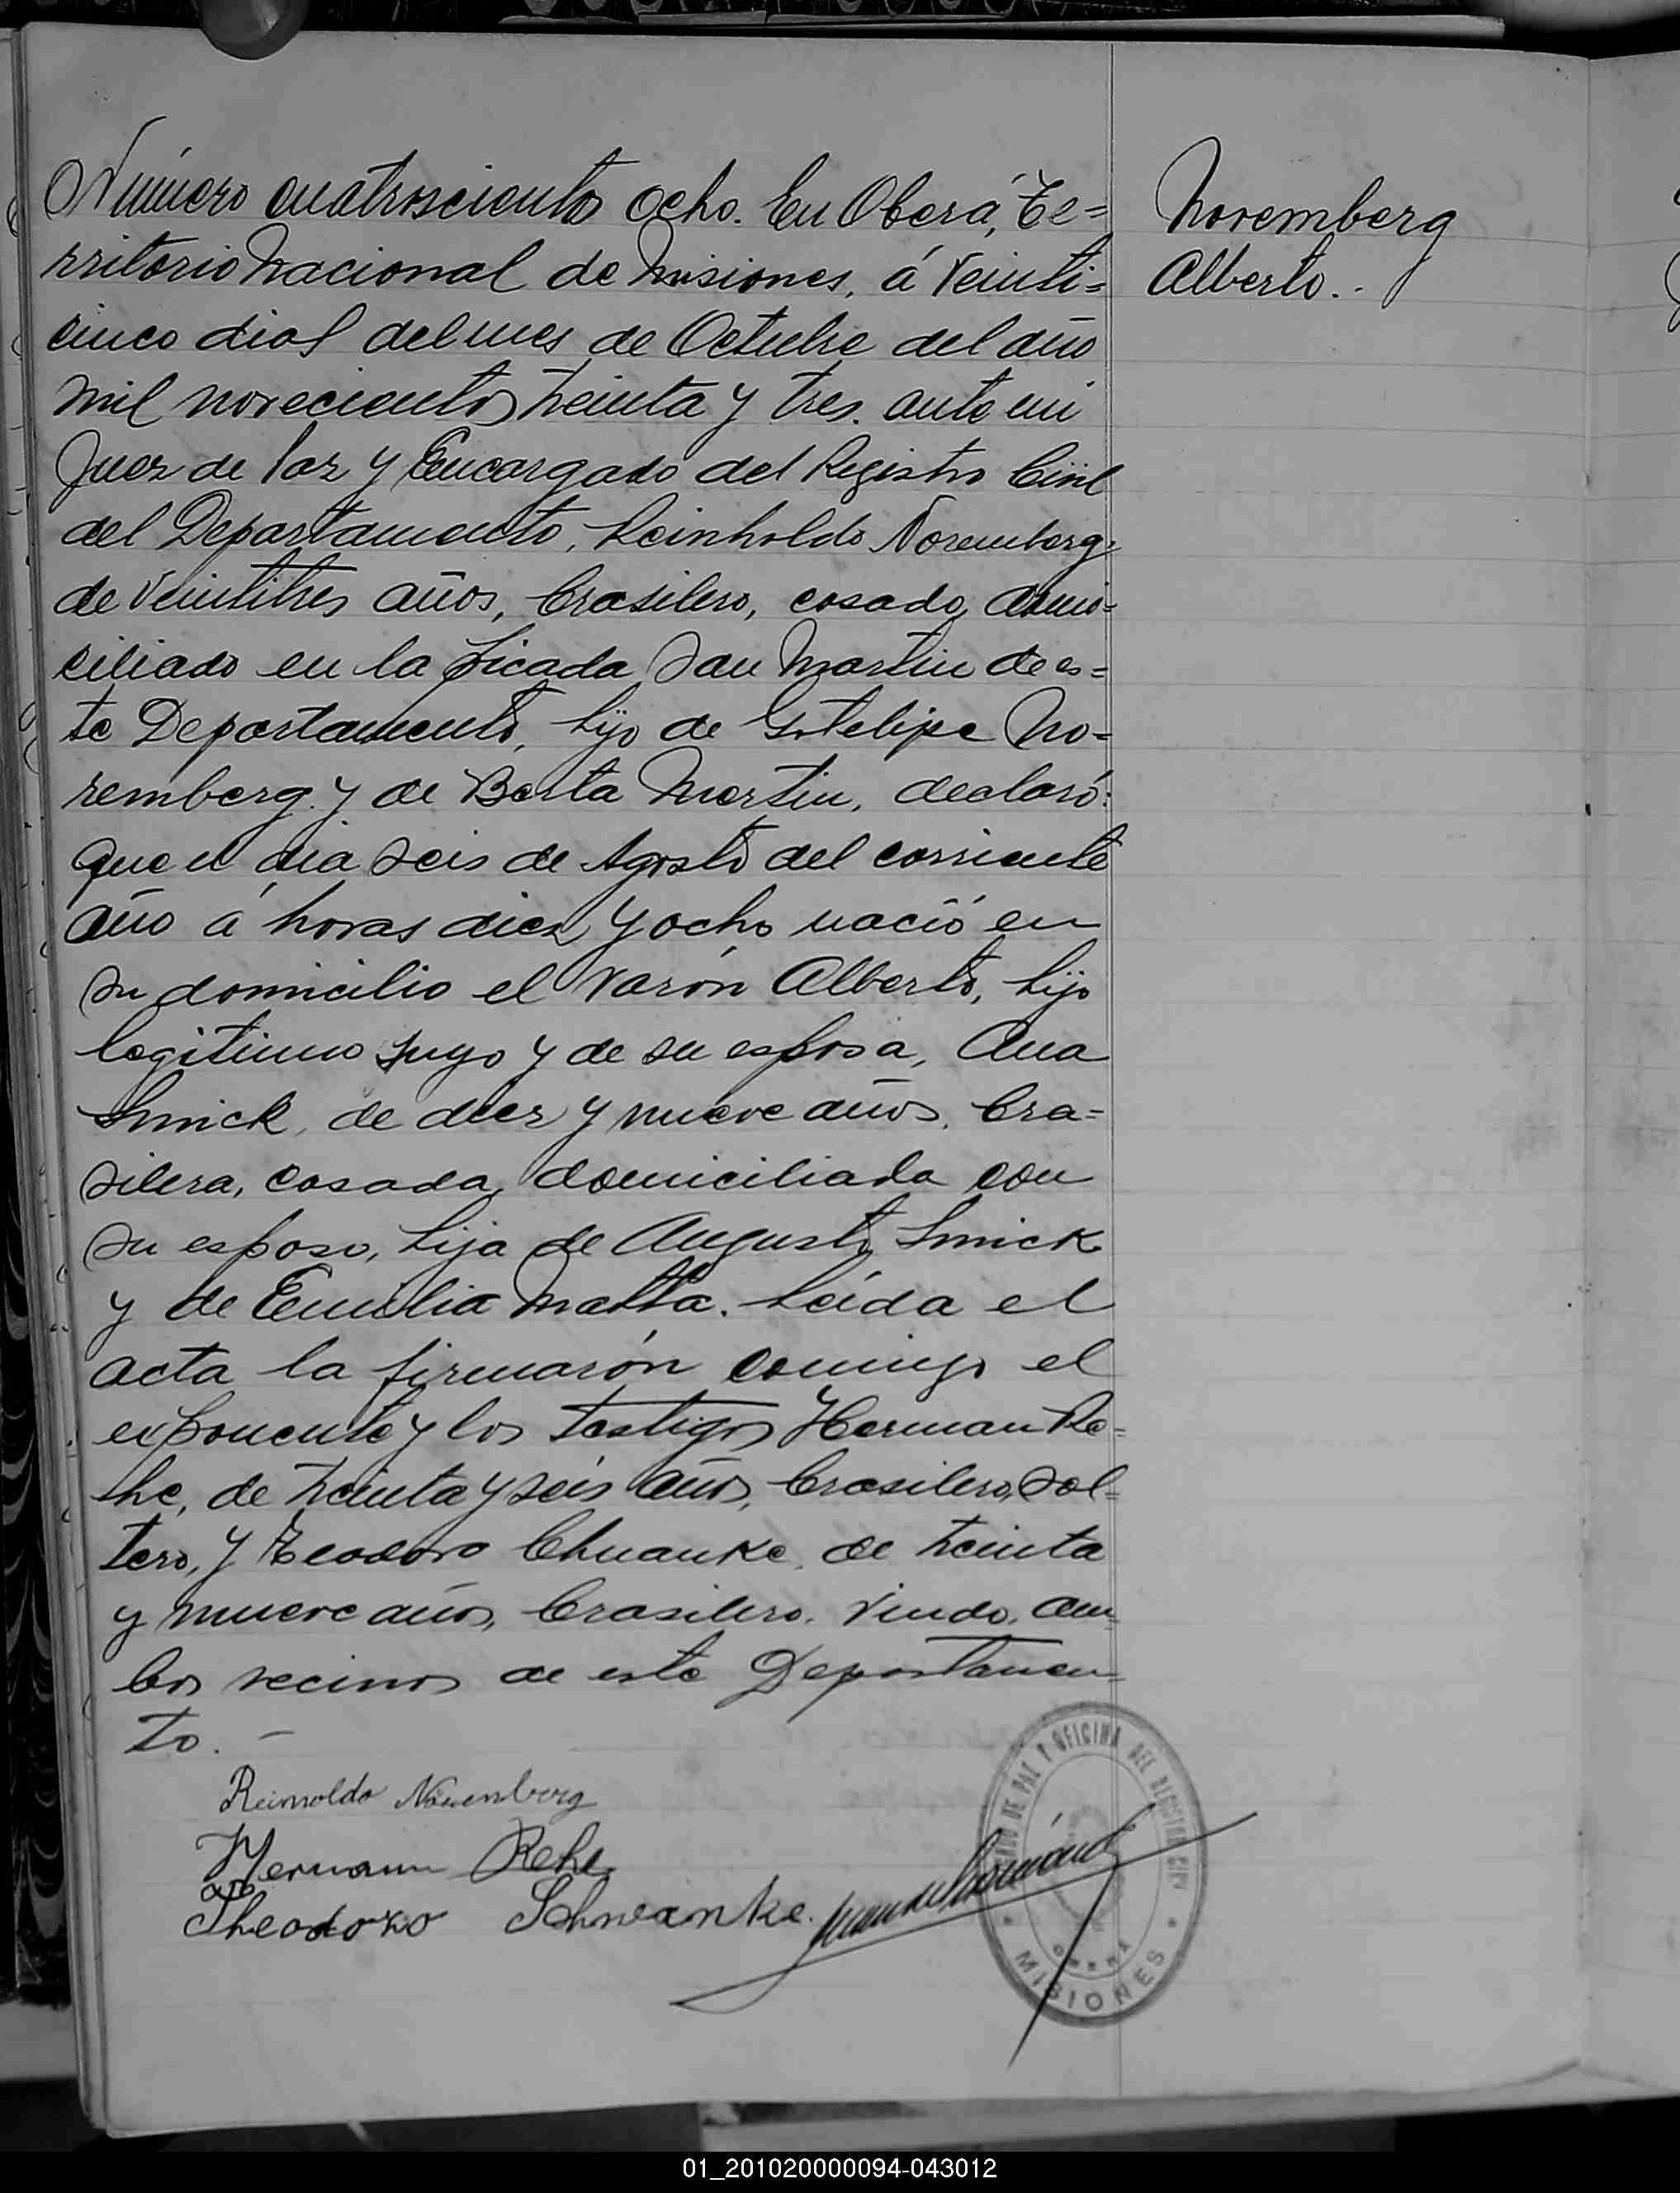 Número cuatroscientos ocho. En Oberá, Te=
rritorio Nacional de Misiones, á veinti=
cinco dias del mes de Octubre del año
mil novecientos treinta y tres. ante mi
Juez de Paz y Encargado del Registro Civil
del Departamento, Reinholdo Noremberg,
de veintitres años, brasilero, casado, domi=
ciliado en la picada San Martin de es=
te Departamento, hijo de Gotelipe No=
remberg y de Berta Martin, declaró:
que el dia seis de Agosto del corriente
año á horas diez y ocho nació en
su domicilio el varón Alberto, hijo
legitimo suyo y de su esposa, Ana
Smick, de diez y nueve años, bra=
silera, casada, domiciliada con
su esposo, hija de Augusto Smick
y de Emilia Matta. Leida el
acta la firmarón comigo el
exponente y los testigos Herman Re=
he, de treinta y seis años, brasilero, sol=
tero, y Teodoro Chuanke, de treinta
y nueve años, brasilero, viudo, am
bos vecinos de este Departamen
to. —
Noremberg
Alberto..
Reinoldo Noremberg
Hermann Rehe
Theodoro Schwanke.
JUZGADO DE PAZ Y OFICINA DEL REGISTRO CIVIL
OBERÁ
MISIONES
01_201020000094-043012